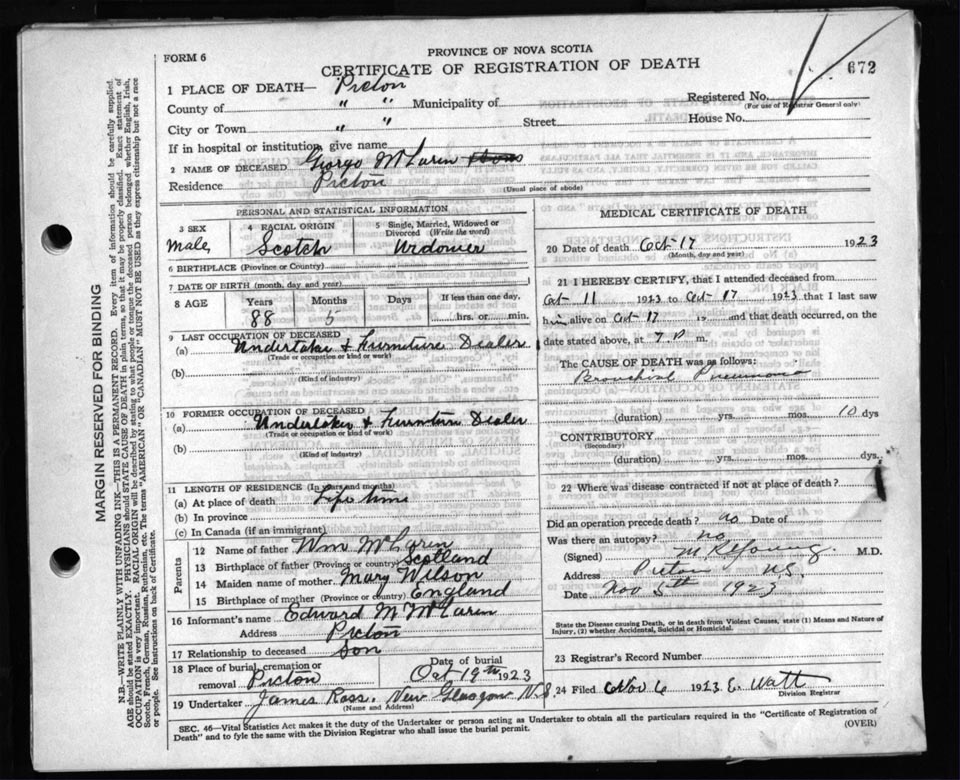 FORM 6
PROVINCE OF NOVA SCOTIA
CERTIFICATE OF REGISTRATION OF DEATH
672
1 PLACE OF DEATH— Pictou
Registered No.
(For use of Registrar General only)
County of " " Municipality of
City or Town " " Street House No.
If in hospital or institution, give name
2 NAME OF DECEASED George McLaren
Residence Pictou
(Usual place of abode)
PERSONAL AND STATISTICAL INFORMATION
3 SEX
Male
4 RACIAL ORIGIN
Scotch
5 Single, Married, Widowed or Divorced (Write the word)
Widower
6 BIRTHPLACE (Province or Country)
7 DATE OF BIRTH (month, day and year)
8 AGE Years Months Days If less than one day,
88 5 hrs. or min.
9 LAST OCCUPATION OF DECEASED
(a) Undertaker & Furniture Dealer
(Trade or occupation or kind of work)
(b)
(Kind of industry)
10 FORMER OCCUPATION OF DECEASED
(a) Undertaker & Furniture Dealer
(Trade or occupation or kind of work)
(b)
(Kind of industry)
11 LENGTH OF RESIDENCE (In years and months)
(a) At place of death Life time
(b) In province
(c) In Canada (if an immigrant)
Parents
12 Name of father Wm McLaren
13 Birthplace of father (Province or country) Scotland
14 Maiden name of mother Mary Wilson
15 Birthplace of mother (Province or country) England
16 Informant's name Edward M McLaren
Address Pictou
17 Relationship to deceased Son
18 Place of burial, cremation or removal Pictou
Date of burial
Oct 19th 1923
19 Undertaker James Ross. New Glasgow N.S
(Name and Address)
MEDICAL CERTIFICATE OF DEATH
20 Date of death Oct 17 1923
(Month, day and year)
21 I HEREBY CERTIFY, that I attended deceased from
Oct 11 1923 to Oct 17 1923 that I last saw
him alive on Oct 17 19 and that death occurred, on
date stated above, at 7 P m.
The CAUSE OF DEATH was as follows:
Bronchial Pneumonia
(duration) yrs. mos. 10 dys
CONTRIBUTORY
(Secondary)
(duration) yrs. mos. dys.
22 Where was disease contracted if not at place of death?
Did an operation precede death? no Date of
Was there an autopsy? no
(Signed) M.D.
Address Pictou N.S.
Date Nov 5th 1923
State the Disease causing Death, or in death from Violent Causes, state (1) Means and Nature of Injury, (2) whether Accidental, Suicidal or Homicidal.
23 Registrar's Record Number
24 Filed Nov 6 1923 E. Watt
Division Registrar
SEC. 46—Vital Statistics Act makes it the duty of the Undertaker or person acting as Undertaker to obtain all the particulars required in the "Certificate of Registration of
Death" and to fyle the same with the Division Registrar who shall issue the burial permit.
(OVER)
MARGIN RESERVED FOR BINDING
N.B.—WRITE PLAINLY WITH UNFADING INK—THIS IS A PERMANENT RECORD. Every item of information should be carefully supplied.
AGE should be stated EXACTLY. PHYSICIANS should STATE CAUSE OF DEATH in plain terms, so that it may be properly classified. Exact statement of
OCCUPATION is very important. RACIAL ORIGIN will be described by stating to what people or tongue the deceased person belonged whether English, Irish,
Scotch, French, German, Russian, Ruthenian, etc. The terms "AMERICAN" OR "CANADIAN" MUST NOT BE USED as they express citizenship but not a race
or people. See instructions on back of Certificate.